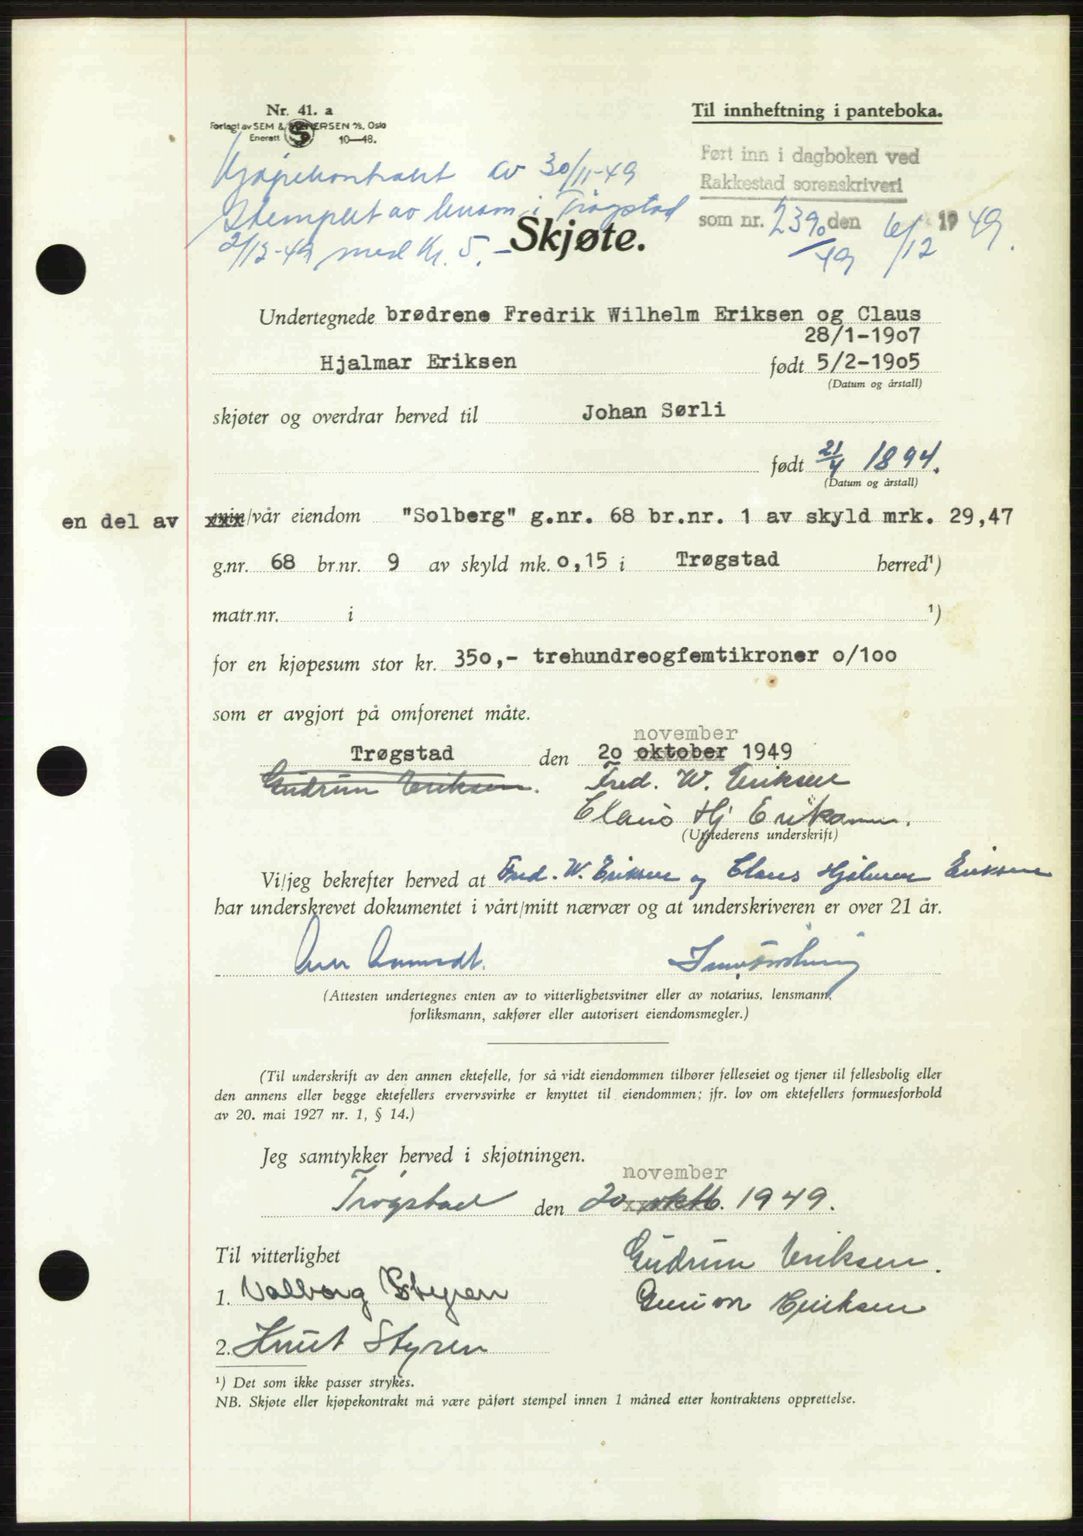 Nr. 41. a
Forlagt av SEM & STENERSEN A/S, Oslo
Enerett 10—48.
Til innheftning i panteboka.
Kjøpekontrakt av 30/11-49
Stemplet av lensm. i Trøgstad
2/12-49 med Kr. 5.-
Ført inn i dagboken ved
Rakkestad sorenskriveri
som nr. 2390/49 den 6/12 1949.
Skjøte.
Undertegnede brødrene Fredrik Wilhelm Eriksen og Claus
28/1-1907
Hjalmar Eriksen født 5/2-1905
(Datum og årstall)
skjøter og overdrar herved til Johan Sørli
født 21/4 1894.
(Datum og årstall)
en del av min/vår eiendom "Solberg" g.nr. 68 br.nr. 1 av skyld mrk. 29,47
g.nr. 68 br.nr. 9 av skyld mk. 0,15 i Trøgstad herred¹)
matr.nr. i ¹)
for en kjøpesum stor kr. 350,- trehundreogfemtikroner 0/100
som er avgjort på omforenet måte.
november
Trøgstad den 20 oktober 1949
Gudrun Eriksen. Fred. W. Eriksen
Claus Hj Eriksen.
(Utstederens underskrift)
Vi/jeg bekrefter herved at Fred. W. Eriksen og Claus Hjalmar Eriksen
har underskrevet dokumentet i vårt/mitt nærvær og at underskriveren er over 21 år.
(Attesten undertegnes enten av to vitterlighetsvitner eller av notarius, lensmann,
forliksmann, sakfører eller autorisert eiendomsmegler.)
(Til underskrift av den annen ektefelle, for så vidt eiendommen tilhører felleseiet og tjener til fellesbolig eller
den annens eller begge ektefellers ervervsvirke er knyttet til eiendommen; jfr. lov om ektefellers formuesforhold
av 20. mai 1927 nr. 1, § 14.)
Jeg samtykker herved i skjøtningen.
november
Trøgstad den 20 oktb. 1949.
Til vitterlighet
Gudrun Eriksen.
1. Valborg Styren
Eriksen
2. Knut Styren
¹) Det som ikke passer strykes.
NB. Skjøte eller kjøpekontrakt må være påført stempel innen 1 måned etter kontraktens opprettelse.